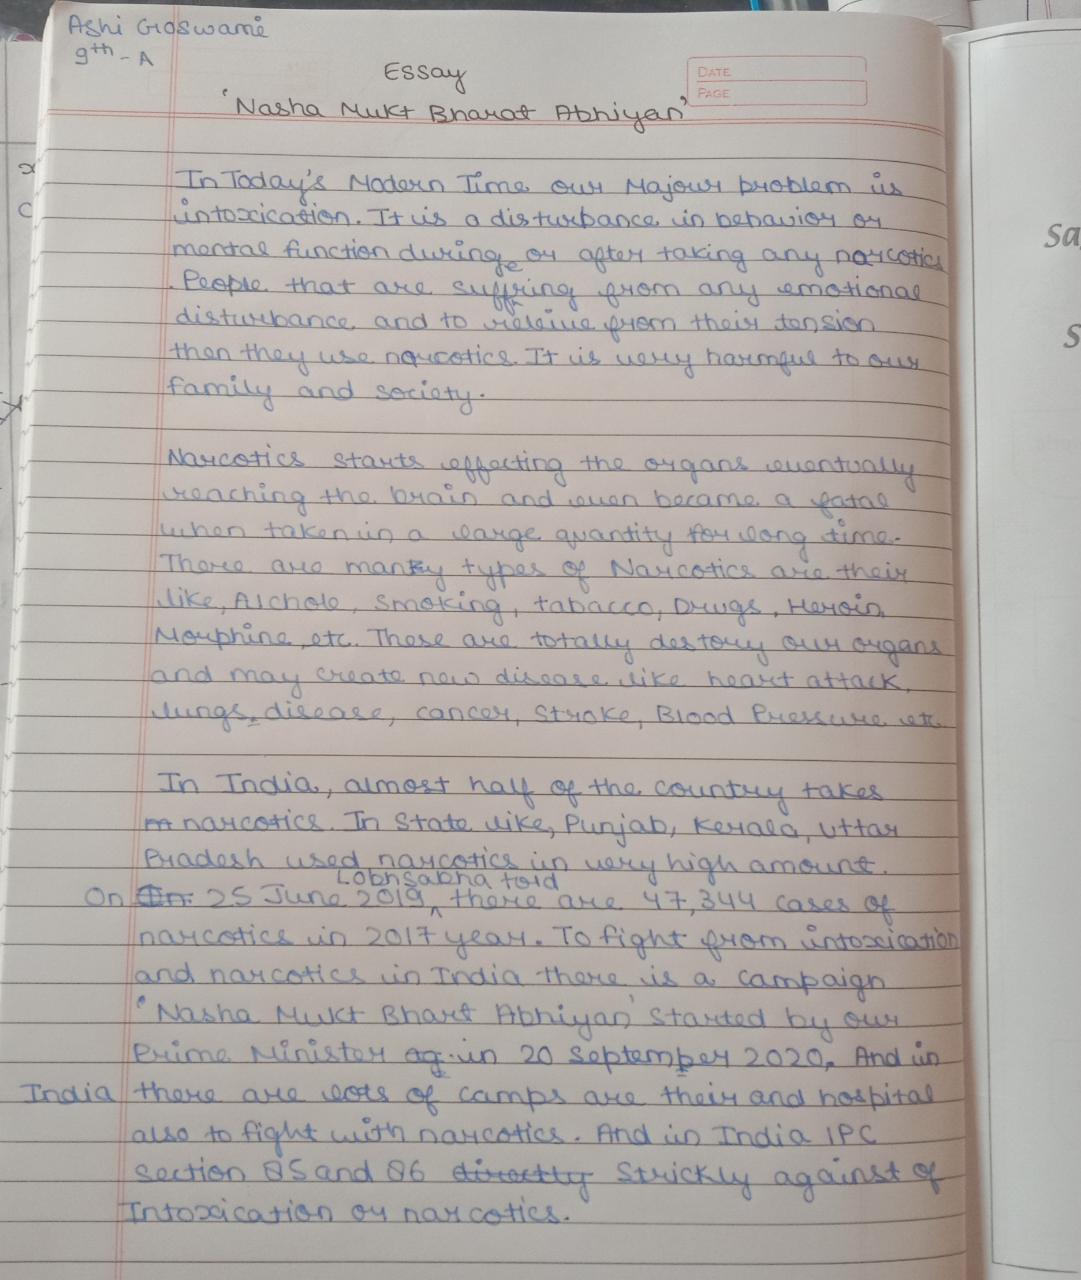 Ashi Goswami
9th - A
Essay
DATE
PAGE
'Nasha Mukt Bharat Abhiyan'
In Today's Modern Time our Majour problem is
intoxication. It is a disturbance in behavior or
mental function during or after taking any narcotics
. People that are suffering from any emotional
disturbance and to releive from their tension
then they use narcotics. It is very harmful to our
family and society.
Narcotics starts effecting the organs eventually
reaching the brain and even became a fatal
when taken in a large quantity for long time.
There are many types of Narcotics are their
like, Alchole, smoking, tabacco, Drugs, Heroin,
Morphine, etc. These are totally destory our organs
and may create new disease like heart attack,
lungs disease, cancer, Stroke, Blood Pressure etc.
In India, almost half of the country takes
narcotics. In State like, Punjab, Kerala, Uttar
Pradesh used narcotics in very high amount.
On 25 June 2019, Lobhsabha told there are 47,344 cases of
narcotics in 2017 year. To fight from intoxication
and narcotics in India there is a campaign
'Nasha Mukt Bhart Abhiyan' Started by our
Prime Minister in 20 September 2020. And in
India there are lots of camps are their and hospital
also to fight with narcotics. And in India IPC
section 85 and 86 Strickly against of
Intoxication or narcotics.
Sa
S